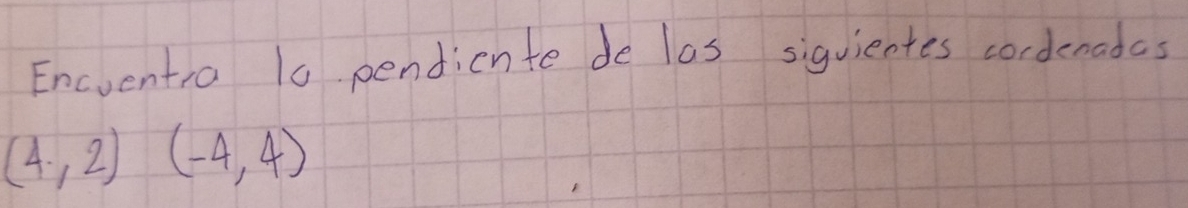 Encuentra la pendiente de las siguientes cordenadas
(4,2) (-4,4)